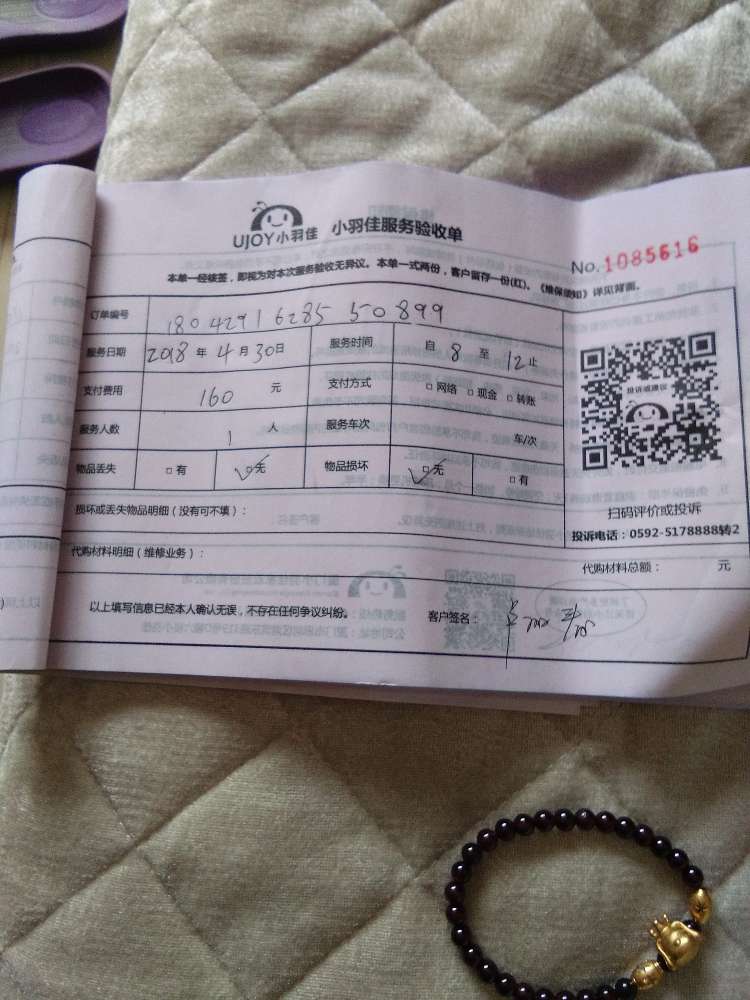 UJOY小羽佳 小羽佳服务验收单
No.1085616
本单一经核签，即视为对本次服务验收无异议。本单一式两份，客户留存一份(红)。《维保须知》详见背面。
订单编号 18042916285 50899
服务日期 2018 年 4 月 30 日 服务时间 自 8 至 12 止
支付费用 160 元 支付方式 □ 网络 □ 现金 □ 转账
服务人数 1 人 服务车次 车/次
物品丢失 □ 有 ☑ 无 物品损坏 ☑ 无 □ 有
投诉或建议
扫码评价或投诉
投诉电话：0592-5178888转2
损坏或丢失物品明细（没有可不填）：
代购材料明细（维修业务）： 代购材料总额： 元
以上填写信息已经本人确认无误，不存在任何争议纠纷。 客户签名：